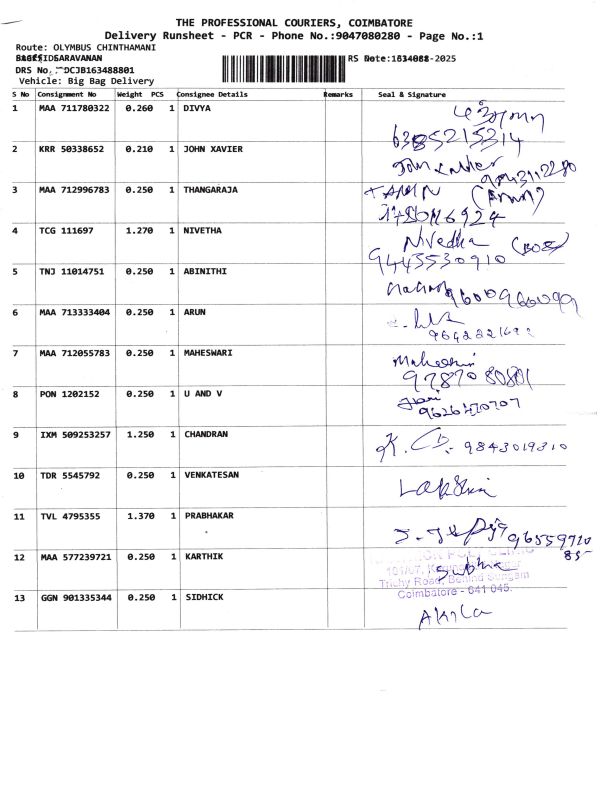 THE PROFESSIONAL COURIERS, COIMBATORE
Delivery Runsheet - PCR - Phone No.:9047080280 - Page No.:1
Route: OLYMBUS CHINTHAMANI
SARAVANAN
DRS No. DCJB163488801
Vehicle: Big Bag Delivery
RS -2025
S No Consignment No Weight PCS Consignee Details Remarks Seal & Signature
1 MAA 711780322 0.260 1 DIVYA
6385215314
2 KRR 50338652 0.210 1 JOHN XAVIER
John Xavier
3 MAA 712996783 0.250 1 THANGARAJA
4 TCG 111697 1.270 1 NIVETHA Nivedha
9443530910
5 TNJ 11014751 0.250 1 ABINITHI 9600960099
6 MAA 713333404 0.250 1 ARUN
7 MAA 712055783 0.250 1 MAHESWARI Maheswari
9787080801
8 PON 1202152 0.250 1 U AND V
9626470707
9 IXM 509253257 1.250 1 CHANDRAN K. 9843019310
10 TDR 5545792 0.250 1 VENKATESAN
11 TVL 4795355 1.370 1 PRABHAKAR 96559720
85
12 MAA 577239721 0.250 1 KARTHIK Subha
Trichy Road, Behind Sungam
Coimbatore - 641 045.
13 GGN 901335344 0.250 1 SIDHICK Akila